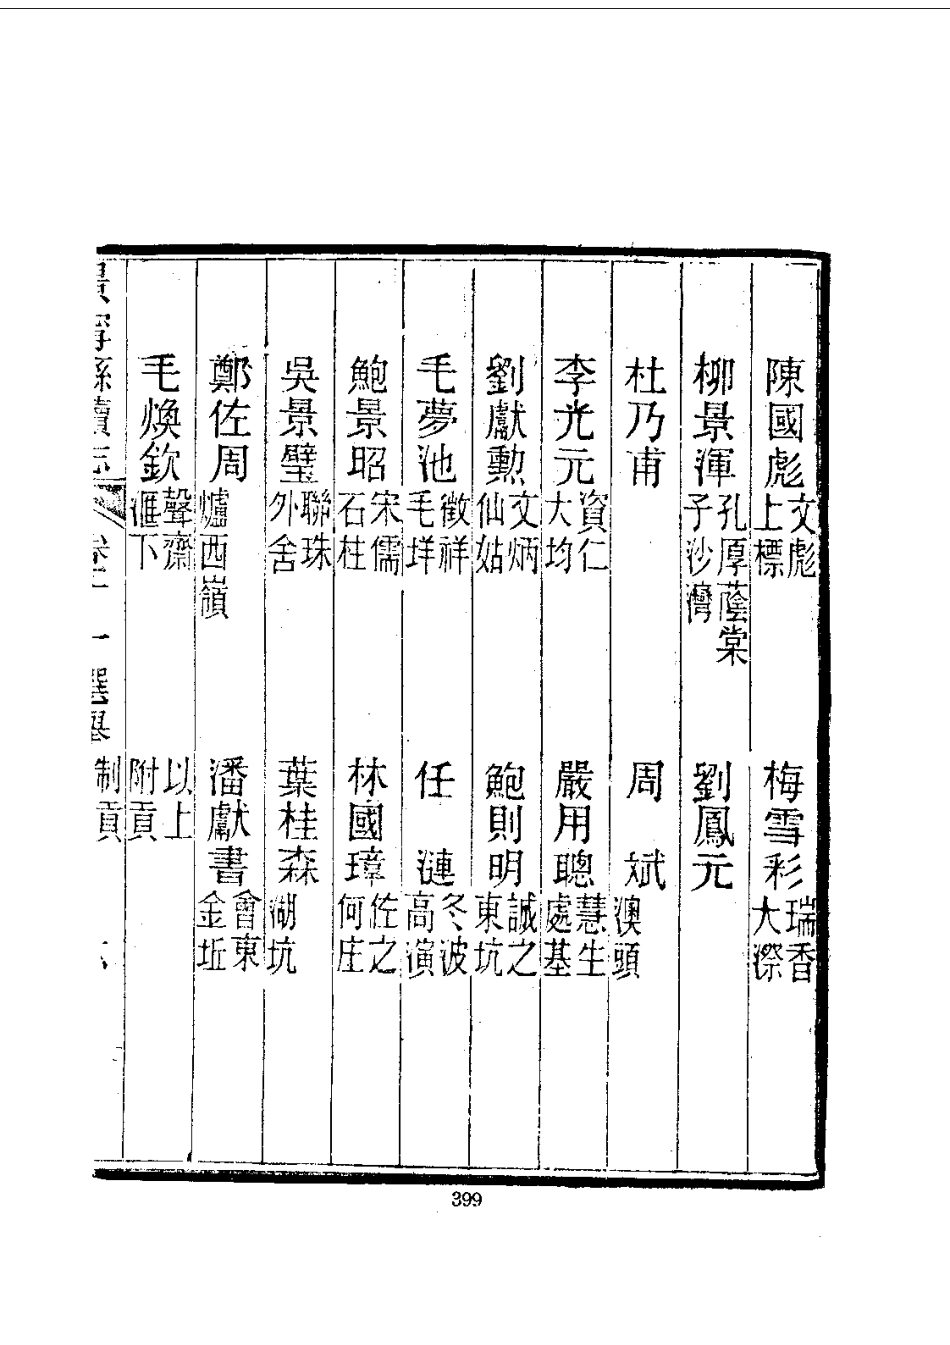 陳國彪 文彪 上標 梅雪彩 瑞香 大漈
柳景渾 孔厚蔭棠 子沙灣 劉鳳元
杜乃甫 周斌 澳頭
李光元 資仁 大均 嚴用聰 慧生 處基
劉獻勲 文炳 仙姑 鮑則明 誠之 東坑
毛夢池 徵祥 毛垟 任漣 冬波 高演
鮑景昭 宋儒 石柱 林國璋 佐之 何庄
吳景璧 聯珠 外舍 葉桂森 湖坑
鄭佐周 爐西嶺 潘獻書 會東 金坵
毛煥欽 聲齋 滙下 以上附貢
景寧縣續志 卷十一 選舉 制貢
399